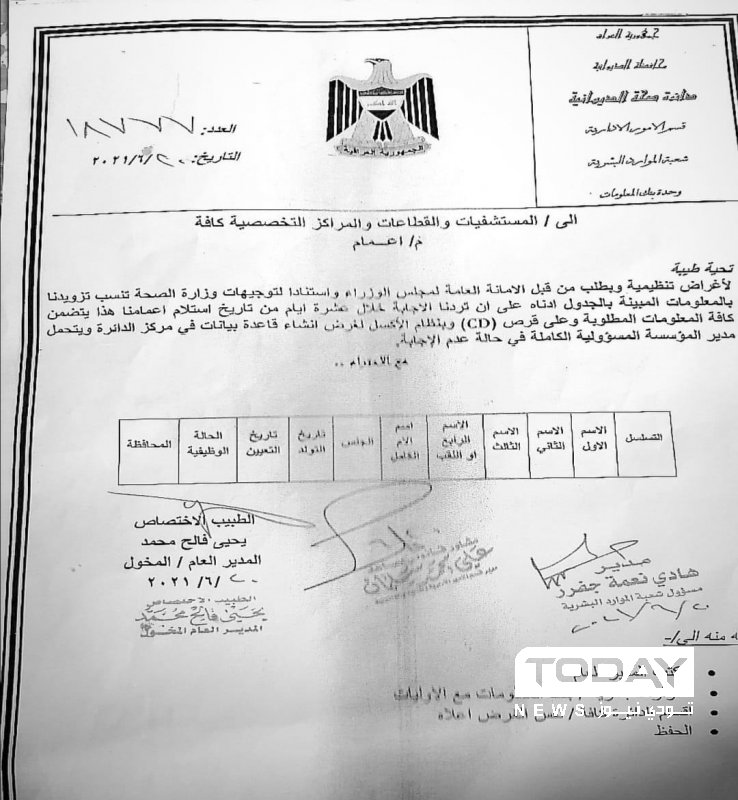 جمهورية العراق
محافظة الديوانية
دائرة صحة الديوانية
قسم الامور الادارية
شعبة الموارد البشرية
وحدة بنك المعلومات
الجمهورية العراقية
العدد: ١٨٧٦٧
التاريخ: ٢٠٢١/٦/٢٠
الى / المستشفيات والقطاعات والمراكز التخصصية كافة
م/ اعمام
تحية طيبة
لأغراض تنظيمية وبطلب من قبل الامانة العامة لمجلس الوزراء واستنادا لتوجيهات وزارة الصحة تنسب تزويدنا
بالمعلومات المبينة بالجدول ادناه على ان تردنا الاجابة خلال عشرة ايام من تاريخ استلام اعمامنا هذا يتضمن
كافة المعلومات المطلوبة وعلى قرص (CD) وبنظام الأكسل لغرض انشاء قاعدة بيانات في مركز الدائرة ويتحمل
مدير المؤسسة المسؤولية الكاملة في حالة عدم الإجابة.
مع الاحترام ..
التسلسل الاسم الاول الاسم الثاني الاسم الثالث الاسم الرابع او اللقب اسم الام الكامل الجنس تاريخ التولد تاريخ التعيين الحالة الوظيفية المحافظة
الطبيب الاختصاص
يحيى فالح محمد
المدير العام / المخول
٢٠٢١/٦/٢٠
الطبيب الاختصاص
يحيى فالح محمد
المدير العام المخول
مدير
هادي نعمة جفرر
مسؤول شعبة الموارد البشرية
٢٠٢١/٦/٢٠
ه منه الى/-
مكتب المدير العام
المعلومات مع الاوليات
اعلاه
الحفظ
TODAY
NEWS تودي نيوز